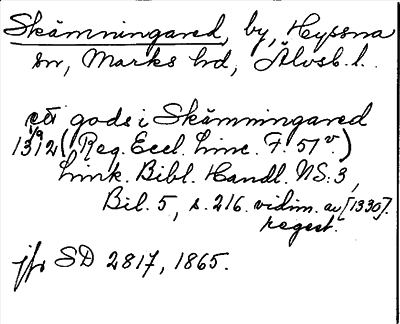 Skämningared, by, Hyssna
sn, Marks hd, Älvsb. l.
ett gods i Skämningared
1312 (Reg. Eccl. Linc. F. 51 v.)
Link. Bibl. Handl. NS: 3,
Bil. 5, s. 216. vidim. av [1330].
regest.
jfr SD 2817, 1865.